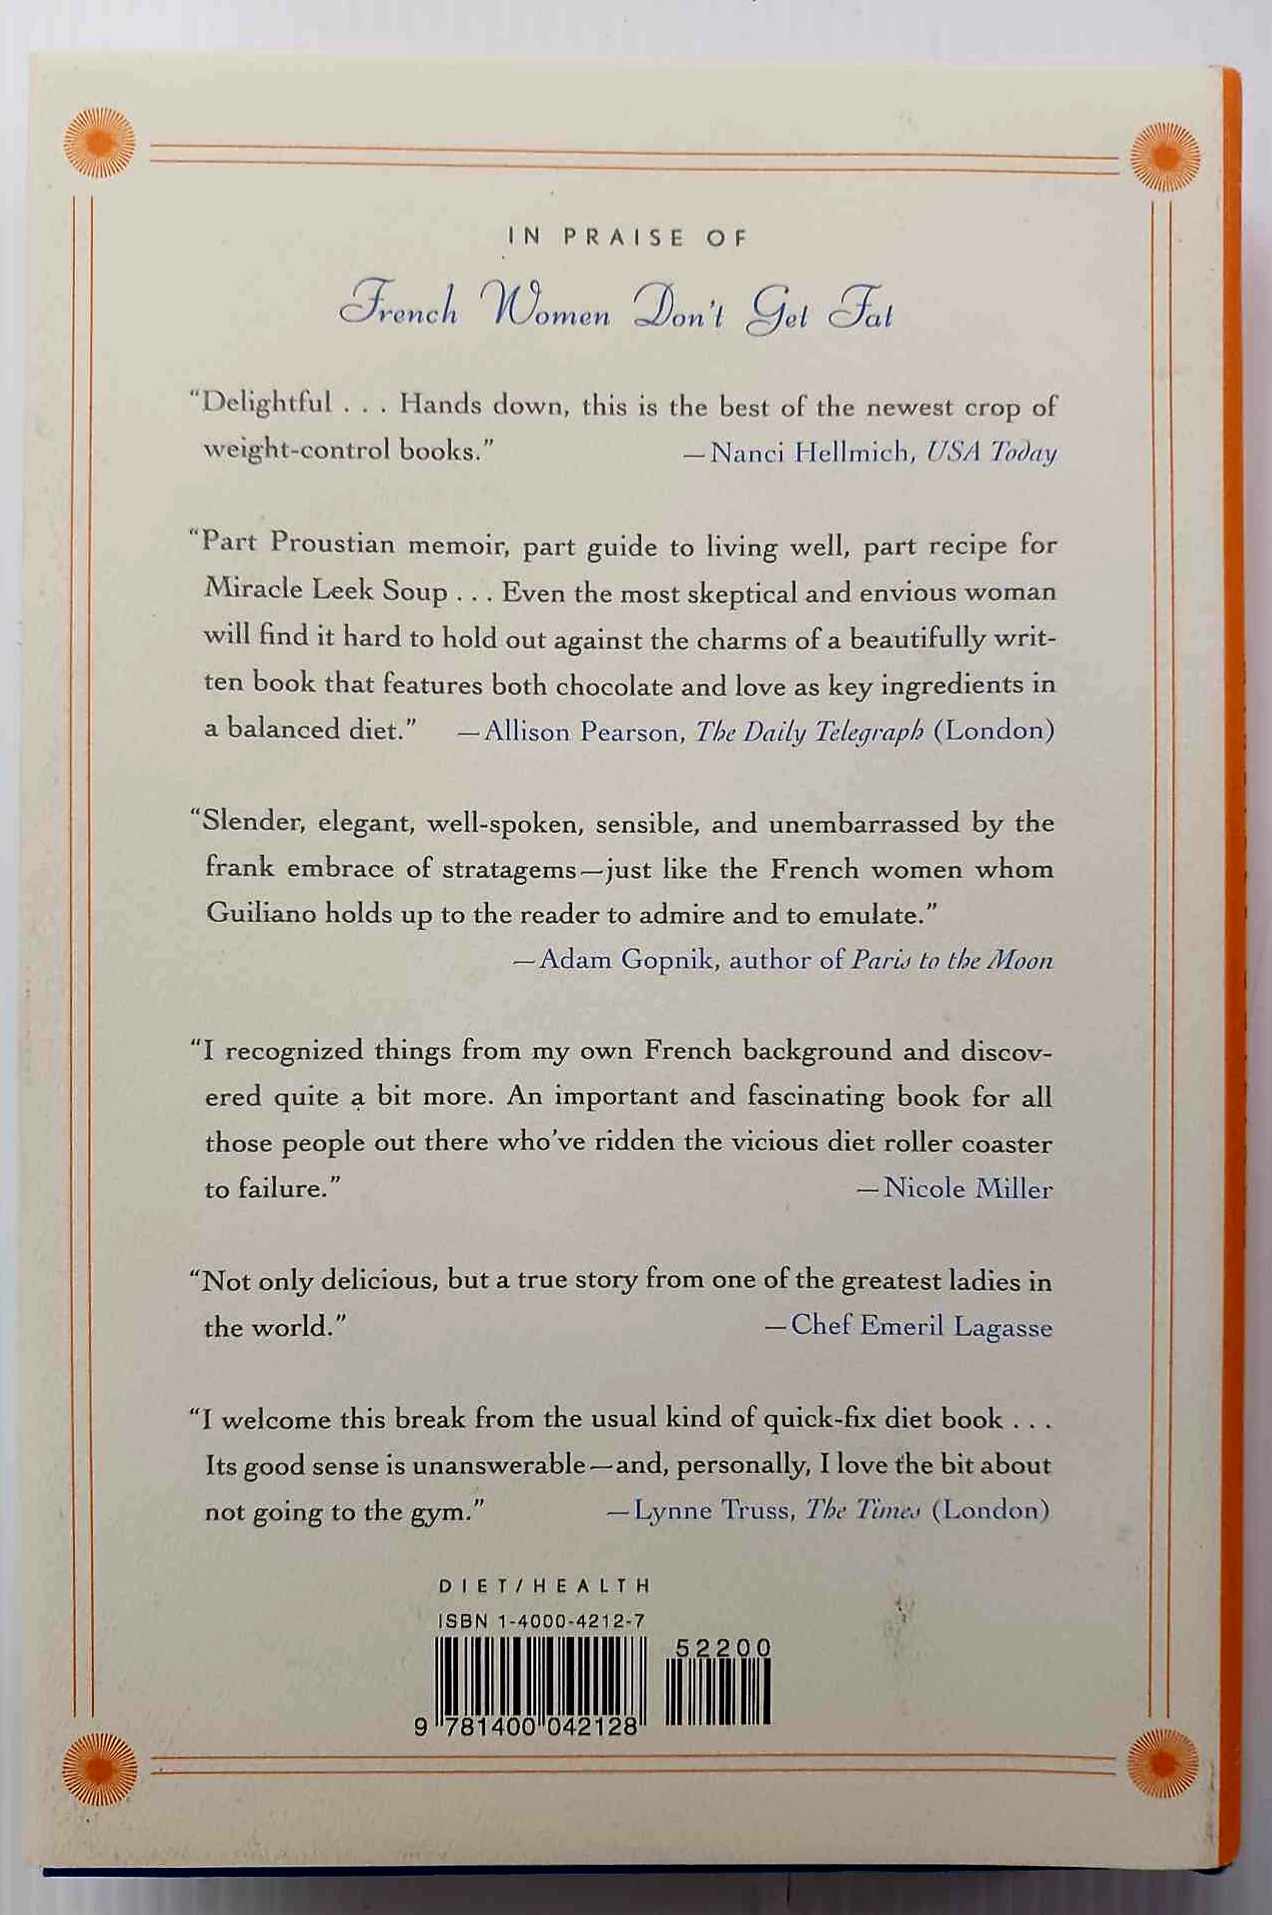 IN PRAISE OF
French Women Don't Get Fat
“Delightful . . . Hands down, this is the best of the newest crop of
weight-control books.” —Nanci Hellmich, USA Today
“Part Proustian memoir, part guide to living well, part recipe for
Miracle Leek Soup . . . Even the most skeptical and envious woman
will find it hard to hold out against the charms of a beautifully writ-
ten book that features both chocolate and love as key ingredients in
a balanced diet.” —Allison Pearson, The Daily Telegraph (London)
“Slender, elegant, well-spoken, sensible, and unembarrassed by the
frank embrace of stratagems—just like the French women whom
Guiliano holds up to the reader to admire and to emulate.”
—Adam Gopnik, author of Paris to the Moon
“I recognized things from my own French background and discov-
ered quite a bit more. An important and fascinating book for all
those people out there who’ve ridden the vicious diet roller coaster
to failure.” —Nicole Miller
“Not only delicious, but a true story from one of the greatest ladies in
the world.” —Chef Emeril Lagasse
“I welcome this break from the usual kind of quick-fix diet book . . .
Its good sense is unanswerable—and, personally, I love the bit about
not going to the gym.” —Lynne Truss, The Times (London)
DIET/HEALTH
ISBN 1-4000-4212-7
52200
9 781400 042128